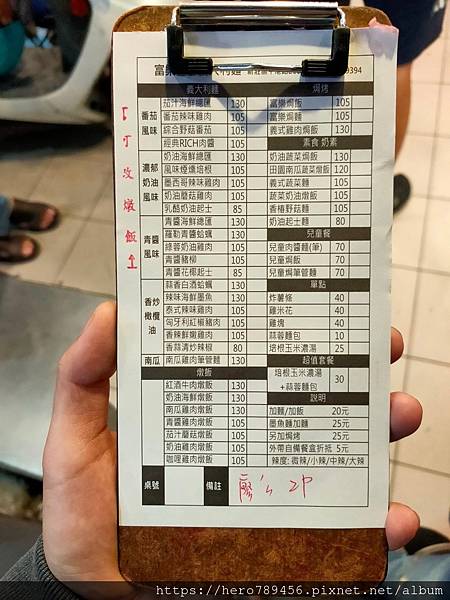 富樂 利麵 9394
義大利麵
番茄風味
茄汁海鮮總匯 130
番茄辣味雞肉 105
綜合野菇番茄 105
經典RICH肉醬 105
濃郁奶油風味
奶油海鮮總匯 130
風味煙燻培根 105
墨西哥辣味雞肉 105
奶油蘑菇雞肉 105
乳酪奶油起士 85
青醬風味
青醬海鮮總匯 130
羅勒青醬蛤蠣 130
綠蓉奶油雞肉 105
青醬豬柳 105
青醬花椰起士 85
香炒橄欖油
蒜香白酒蛤蠣 130
辣味海鮮墨魚 130
泰式辣味雞肉 105
匈牙利紅椒豬肉 105
香辣鮮嫩雞肉 105
香蒜清炒辣椒 80
南瓜 南瓜雞肉筆管麵 130
燉飯
紅酒牛肉燉飯 130
奶油海鮮燉飯 130
南瓜雞肉燉飯 130
青醬雞肉燉飯 105
茄汁蘑菇燉飯 105
奶油雞肉燉飯 105
咖哩雞肉燉飯 105
焗烤
富樂焗飯 105
富樂焗麵 105
義式雞肉焗飯 130
素食 奶素
奶油蔬菜焗飯 130
田園南瓜蔬菜燉飯 120
義式蔬菜麵 105
蔬菜奶油燉飯 105
香椿野菇麵 105
奶油起士麵 80
兒童餐
兒童肉醬麵(筆) 70
兒童焗飯 70
兒童焗筆管麵 70
單點
炸薯條 40
雞米花 40
雞塊 40
蒜蓉麵包 10
培根玉米濃湯 25
超值套餐
培根玉米濃湯
+蒜蓉麵包 30
說明
加麵/加飯 20元
墨魚麵加麵 25元
另加焗烤 25元
外帶自備餐盒折抵 5元
辣度: 微辣/小辣/中辣/大辣
桌號 備註 2P
可改燉飯
https://hero789456.pixnet.net/album